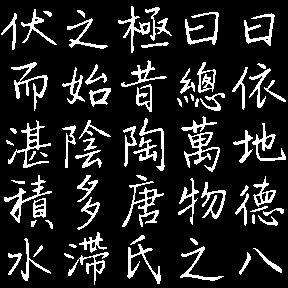 曰依地德八
曰總萬物之
極昔陶唐氏
之始陰多滯
伏而湛積水